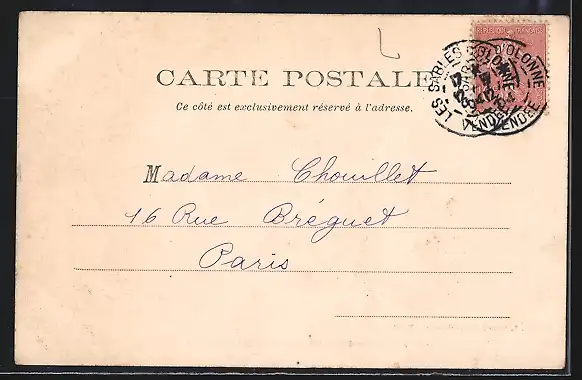 REPUBLIQUE FRANÇAISE
LES SABLES D'OLONNE
VENDEE
CARTE POSTALE
Ce côté est exclusivement réservé à l'adresse.
Madame Chouillet
16 Rue Bréguet
Paris